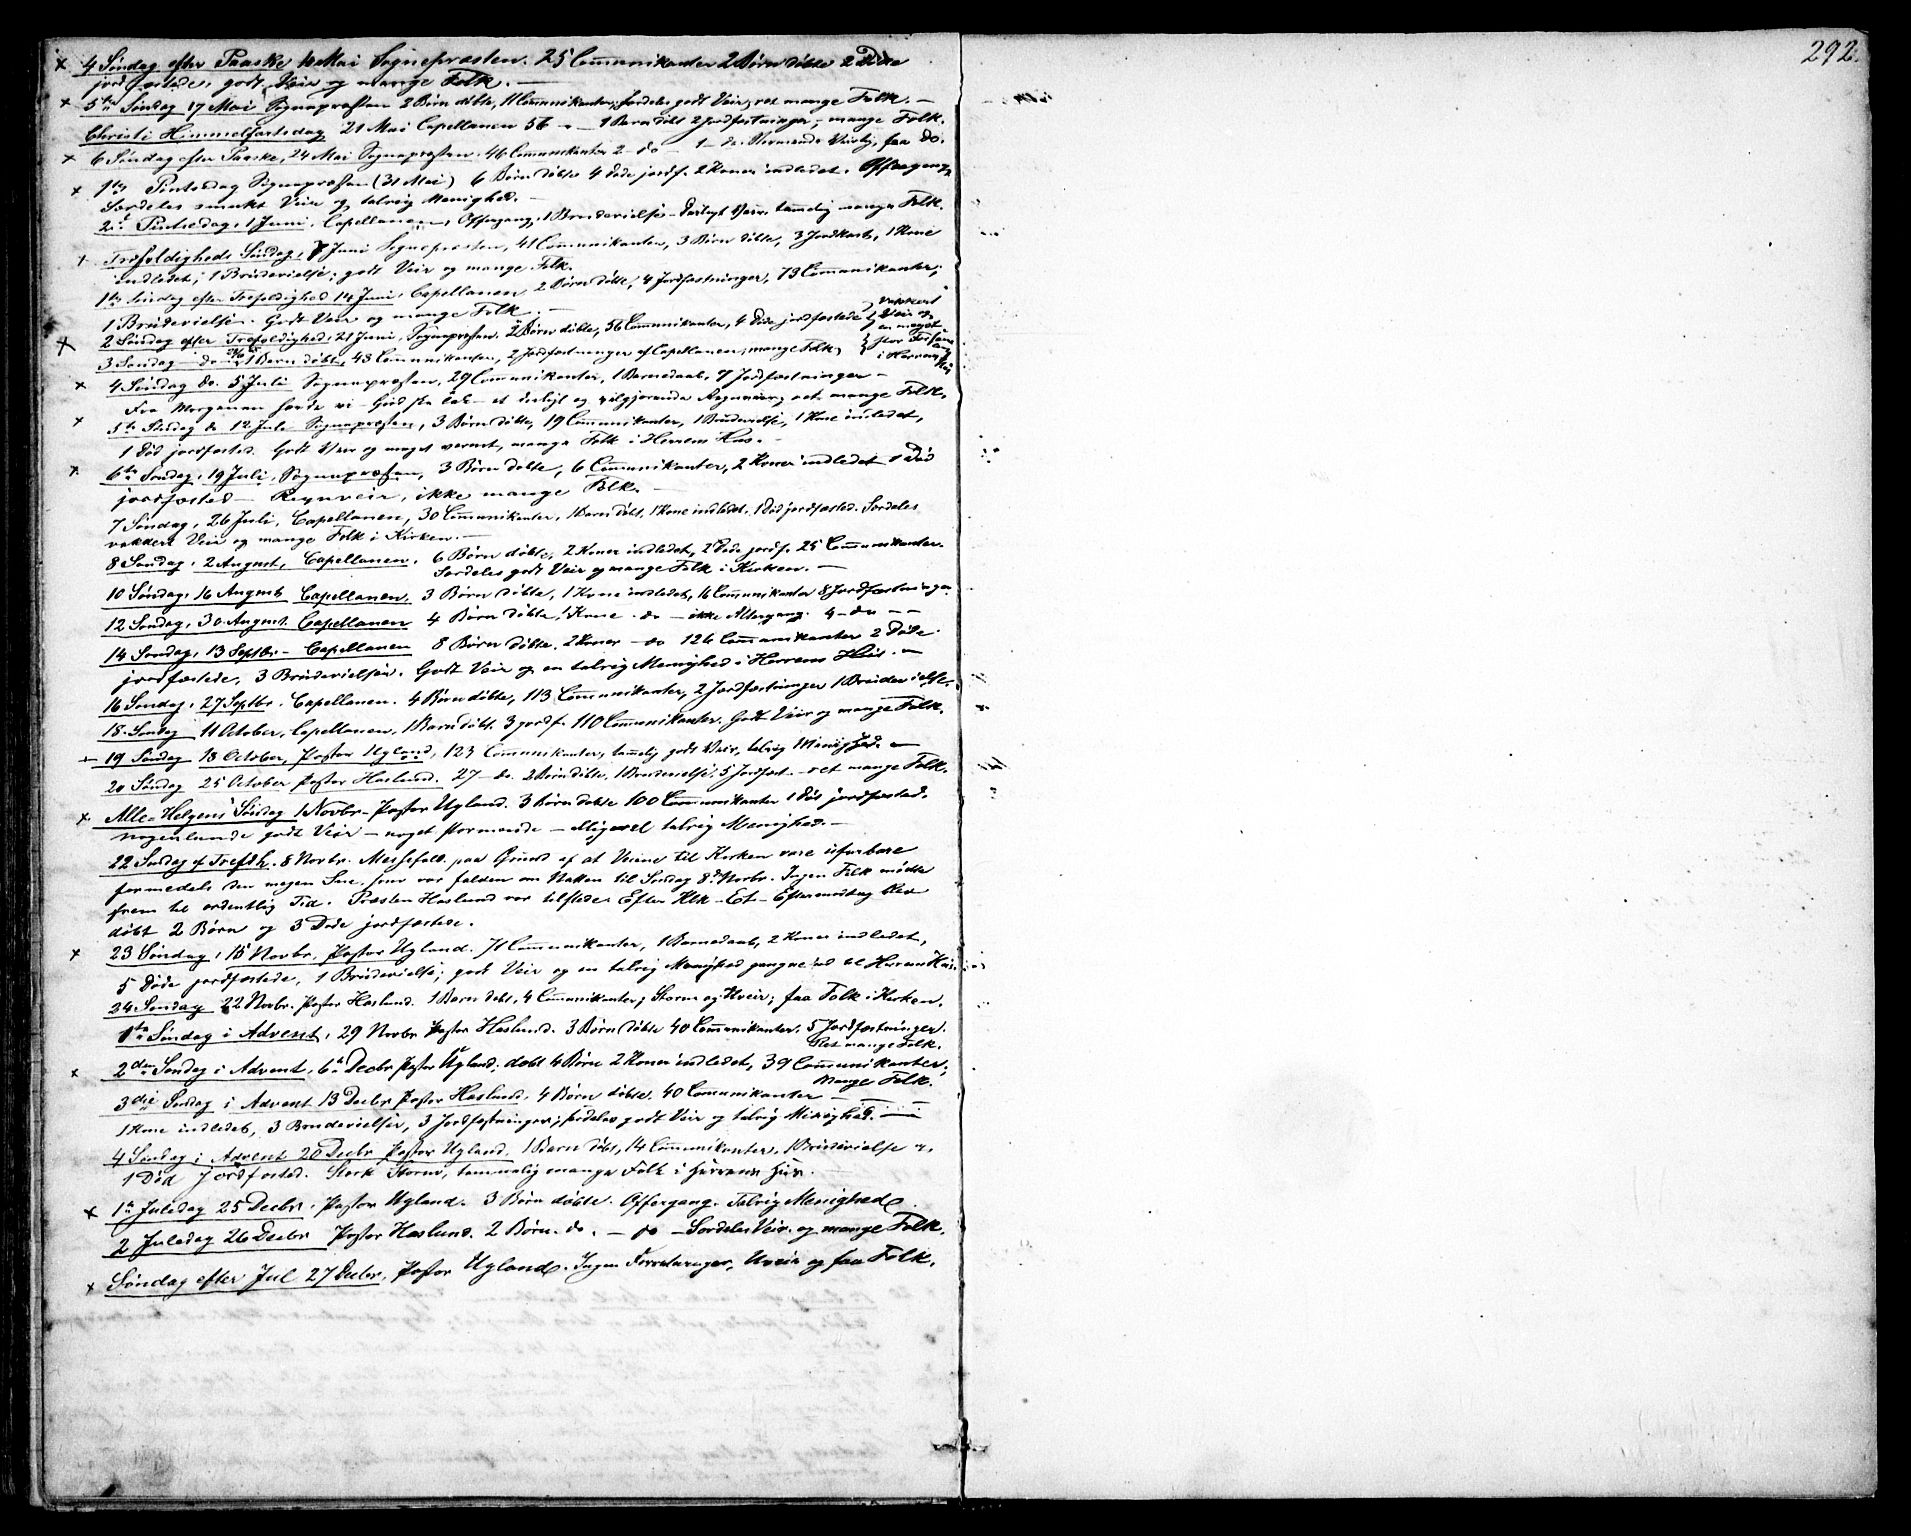 292.
× 4 Søndag efter Paaske 10 Mai Sognepræsten. 25 Communikanter 2 Børn døbte 2 Døde
jordfæstede, godt Veir og mange Folk. —
× 5te Søndag 17 Mai Sognepræsten 2 Børn døbte, 11 Communikanter, særdeles godt Veir, ret mange Folk. —
Christi Himmelfartsdag 21 Mai Capellanen 56 — 1 Barn døbt 2 Jordfæstninger, mange Folk.
× 6 Søndag efter Paaske, 24 Mai Sognepræsten. 46 Communikanter 2 — do — 1 — do. Veirlig, faa do.
× 1ste Pintsedag Sognepræsten (31 Mai) 6 Børn døbte 4 døde jordf. 2 Koner indledet. Offergang,
Særdeles smukt Veir og talrig Menighed. —
2den Pintsedag, 1 Juni, Capellanen, Offergang, 1 Brudevielse — deiligt Veir, temmelig mange Folk.
× Trefoldigheds Søndag, 7 Juni Sognepræsten, 41 Communikanter, 3 Børn døbte, 3 Jordkast, 1 Kone
indledet, 1 Brudevielse; godt Veir og mange Folk.
1ste Søndag efter Trefoldighed 14 Juni, Capellanen 2 Børn døbte, 4 Jordfæstninger, 73 Communikanter;
1 Brudevielse. Godt Veir og mange Folk. —
× 2 Søndag efter Trefoldighed, 21 Juni, Sognepræsten. 2 Børn døbte, 56 Communikanter, 4 Døde jordfæstede
vakkert Veir og en meget stor i Herrens Hus
3 Søndag — do 28/6 1 Barn døbte, 43 Communikanter, 2 Jordfæstninger af Capellanen, mange Folk
× 4 Søndag do. 5 Juli Sognepræsten, 29 Communikanter, 1 Barnedaab, 7 Jordfæstninger —
Fra Morgenen havde vi — Gud ske Lov — et deiligt og velgjørende Regnveir, ret mange Folk.
× 5te Søndag do 12 Juli Sognepræsten, 3 Børn døbte, 19 Communikanter, 1 Brudevielse, 1 Kone indledet,
1 Død jordfæsted. Godt Veir og meget varmt, mange Folk i Herrens Hus. —
× 6te Søndag, 19 Juli, Sognepræsten, 3 Børn døbte, 6 Communikanter, 2 Koner indledet 1 Død
jordfæsted — Regnveir, ikke mange Folk. —
7 Søndag, 26 Juli, Capellanen, 30 Communikanter, 1 Barn døbt, 1 Kone indledet. 1 Død jordfæsted. Særdeles
vakkert Veir og mange Folk i Kirken. —
8 Søndag, 2 August, Capellanen. 6 Børn døbte, 2 Koner indledet, 2 Døde jordf. 25 Communikanter.
Særdeles godt Veir og mange Folk i Kirken. —
10 Søndag, 16 August Capellanen. 3 Børn døbte, 1 Kone indledet, 16 Communikanter 8 Jordfæstninger
12 Søndag, 30 August. Capellanen 4 Børn døbte, 1 Kone — do — ikke Altergang. 4 — do — —
14 Søndag, 13 Septbr — Capellanen 8 Børn døbte. 2 Koner — do 126 Communikanter 2 Døde
jordfæstede, 3 Brudevielser. Godt Veir og en talrig Menighed i Herrens Hus. —
16 Søndag, 27 Septbr. Capellanen. 4 Børn døbte, 113 Communikanter, 2 Jordfæstninger 1 Brudevielse.
18. Søndag 11 October, Capellanen, 1 Barn døbt. 3 jordf. 110 Communikanter. Godt Veir og mange Folk.
+ 19 Søndag 18 October, Pastor Ugland, 123 Communikanter, temmelig godt Veir, talrig Menighed. —
20 Søndag 25 October Pastor Haslund. 27 — do. 2 Børn døbte, 1 Brudevielse, 5 Jordfæst. — ret mange Folk.
× Alle-Helgens Søndag 1 Novbr — Pastor Ugland. 3 Børn døbte 100 Communikanter 1 Død jordfæsted.
nogenlunde godt Veir — noget stormende — alligevel talrig Menighed. —
22 Søndag ef Trefdh. 8 Novbr. Messefald paa Grund af at Veiene til Kirken vare ufarbare
formedels den megen Sne, som var falden om Natten til Søndag 8de Novbr. Ingen Folk mødte
frem til ordentlig Tid. Præsten Haslund var tilstede. Efter Klk — Et — Eftermiddag blev
døbt 2 Børn og 3 Døde jordfæstede.
× 23 Søndag, 15 Novbr, Pastor Ugland. 71 Communikanter, 1 Barnedaab, 2 Koner indledet,
5 Døde jordfæstede, 1 Brudevielse; godt Veir og en talrig Menighed gangne ind til Herrens Hus.
24 Søndag 22 Novbr. Pastor Haslund. 1 Barn døbt, 4 Communikanter, Storm og Uveir; faa Folk i Kirken.
1ste Søndag i Advent, 29 Novbr Pastor Haslund. 3 Børn døbte 40 Communikanter. 5 Jordfæstninger.
Ret mange Folk.
× 2den Søndag i Advent, 6te Decbr Pastor Ugland, døbt 4 Børn 2 Koner indledet, 39 Communikanter;
Mange Folk.
3die Søndag i Advent 13 Decbr Pastor Haslund, 4 Børn døbte, 40 Communikanter —
1 Kone indledet, 3 Brudevielser, 3 Jordfæstninger; særdeles godt Veir og talrig Menighed. —
4 Søndag i Advent 20 Decbr Pastor Ugland, 1 Barn døbt, 14 Communikanter, 1 Brudevielse
1 Død Jordfæsted. Stærk Storm, temmelig mange Folk i Herrens Hus.
× 1ste Juledag 25 Decbr, Pastor Ugland. 3 Børn døbte. Offergang. Talrig Menighed.
2 Juledag 26 Decbr Pastor Haslund. 2 Børn. do. — do — Særdeles Veir. og mange Folk.
× Søndag efter Jul 27 Decbr, Pastor Ugland. Ingen Forretninger, Uveir og faa Folk.